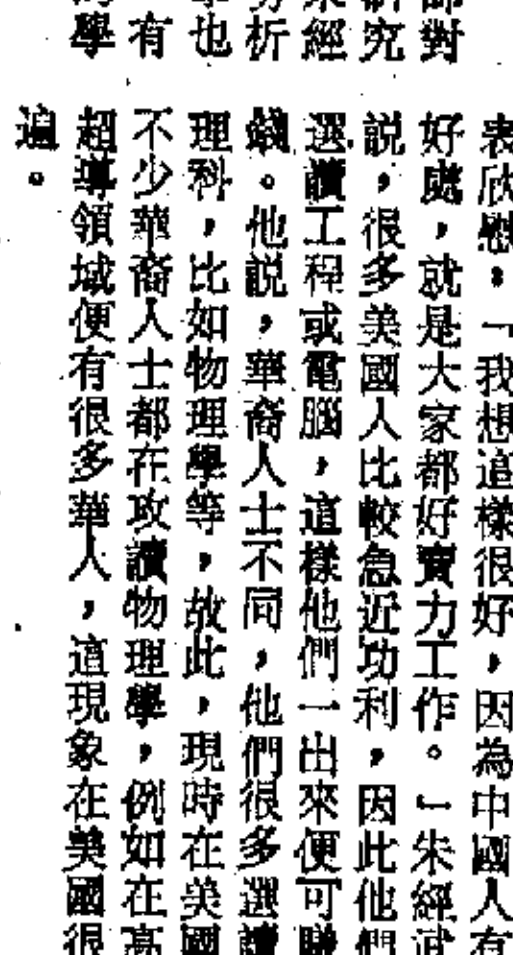 對
究
經
析
也
有
學
表欣慰。「我想這樣很好，因為中國人有
好處，就是大家都好實力工作。」朱經武
説，很多美國人比較急近功利，因此他們
選讀工程或電腦，這樣他們一出來便可賺
錢。他説，華裔人士不同，他們很多選讀
理科，比如物理學等，故此，現時在美國
不少華裔人士都在攻讀物理學，例如在高
超導領域便有很多華人，這現象在美國很
遍。